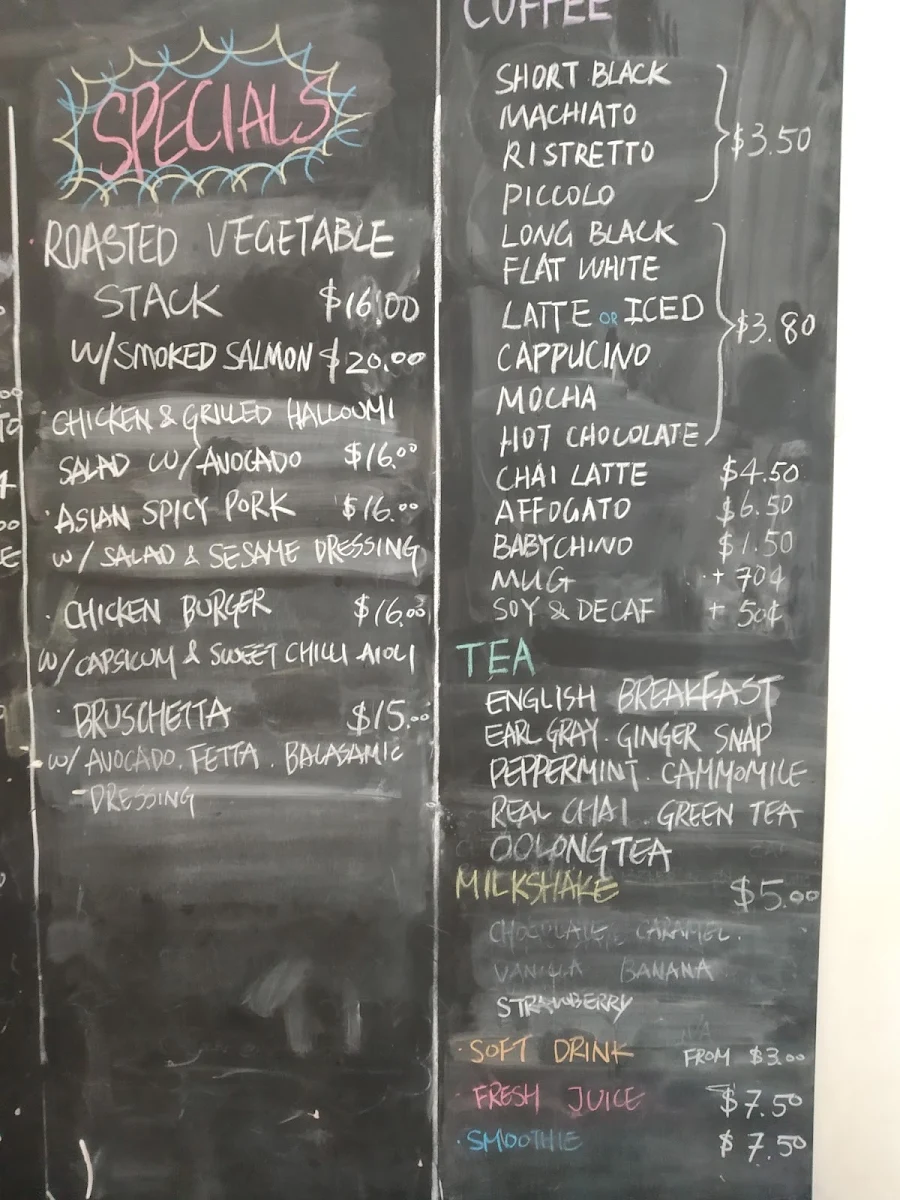 SPECIALS
ROASTED VEGETABLE
STACK $16.00
W/SMOKED SALMON $20.00
CHICKEN & GRILLED HALLOUMI
SALAD W/AVOCADO $16.00
ASIAN SPICY PORK $16.00
W/ SALAD & SESAME DRESSING
CHICKEN BURGER $16.00
W/CAPSICUM & SWEET CHILLI AIOLI
BRUSCHETTA $15.00
W/ AVOCADO. FETTA. BALASAMIC
DRESSING
COFFEE
SHORT BLACK
MACHIATO
RISTRETTO
PICCOLO
$3.50
LONG BLACK
FLAT WHITE
LATTE OR ICED
CAPPUCINO
MOCHA
HOT CHOCOLATE
$3.80
CHAI LATTE $4.50
AFFOGATO $6.50
BABYCHINO $1.50
MUG + 70¢
SOY & DECAF + 50¢
TEA
ENGLISH BREAKFAST
EARL GRAY. GINGER SNAP
PEPPERMINT. CAMMOMILE
REAL CHAI. GREEN TEA
OOLONG TEA
MILKSHAKE $5.00
CHOCOLATE, CARAMEL.
VANILLA BANANA
STRAWBERRY
SOFT DRINK FROM $3.00
FRESH JUICE $7.50
SMOOTHIE $7.50